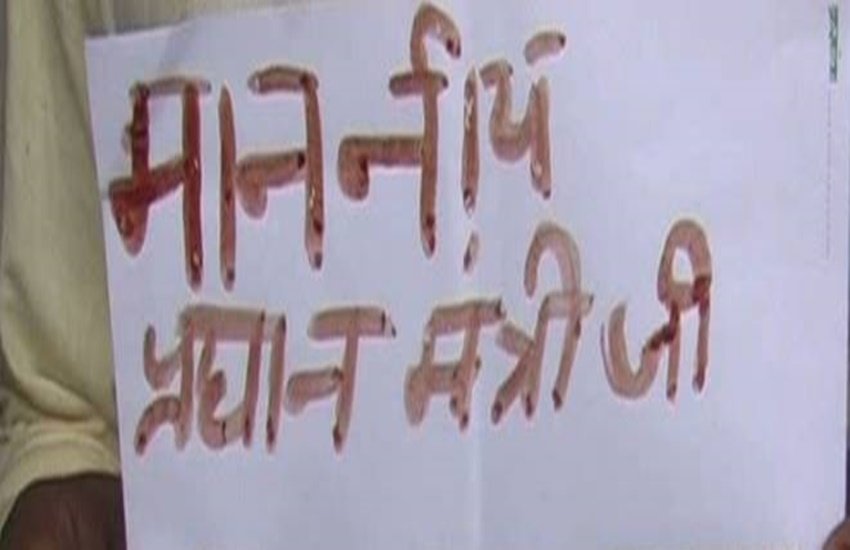 माननीय
प्रधान मत्री जी